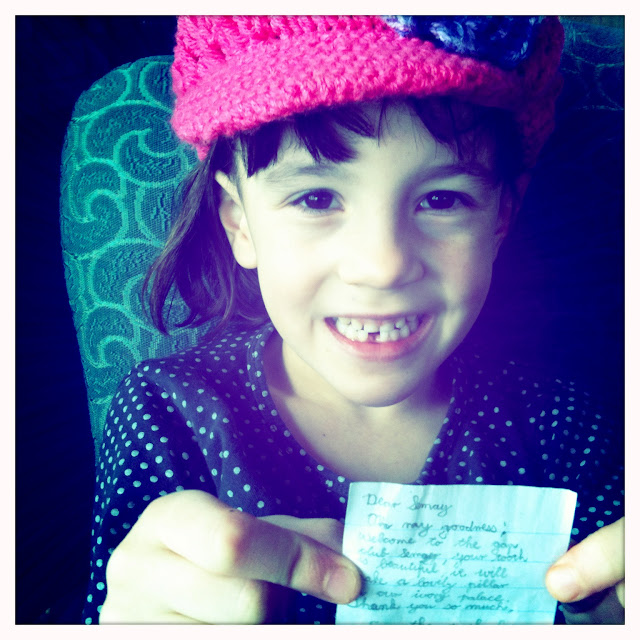 Dear Senay
Oh my goodness!
Welcome to the gap
club Senger, your tooth
is beautiful it will
a lovely pillar
our ivory palace.
Thank you so much.